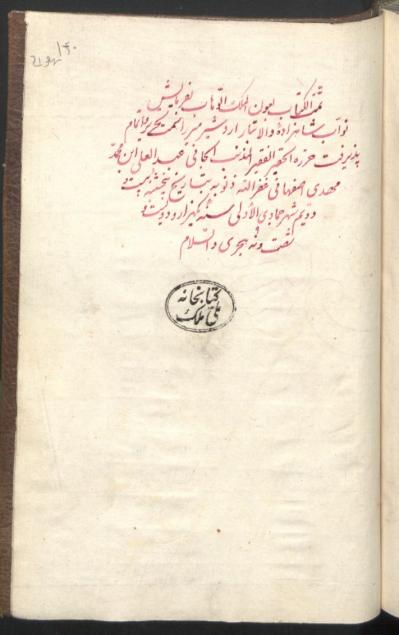 تمت الکتاب بعون الملک الوهاب بفرمایش
نواب شاهزادهٔ والاتبار اردشیر میرزا
پذیرفت حرره الحقیر الفقیر المذنب الجانی عبدالعلی ابن محمد
مهدی اصفهانی غفرالله ذنوبه بتاریخ پنجشنبه بیست و
دویم شهر جمادی الاولی سنه یکهزار و دویست و
شصت و نه هجری والسلام
کتابخانه
ملی ملک